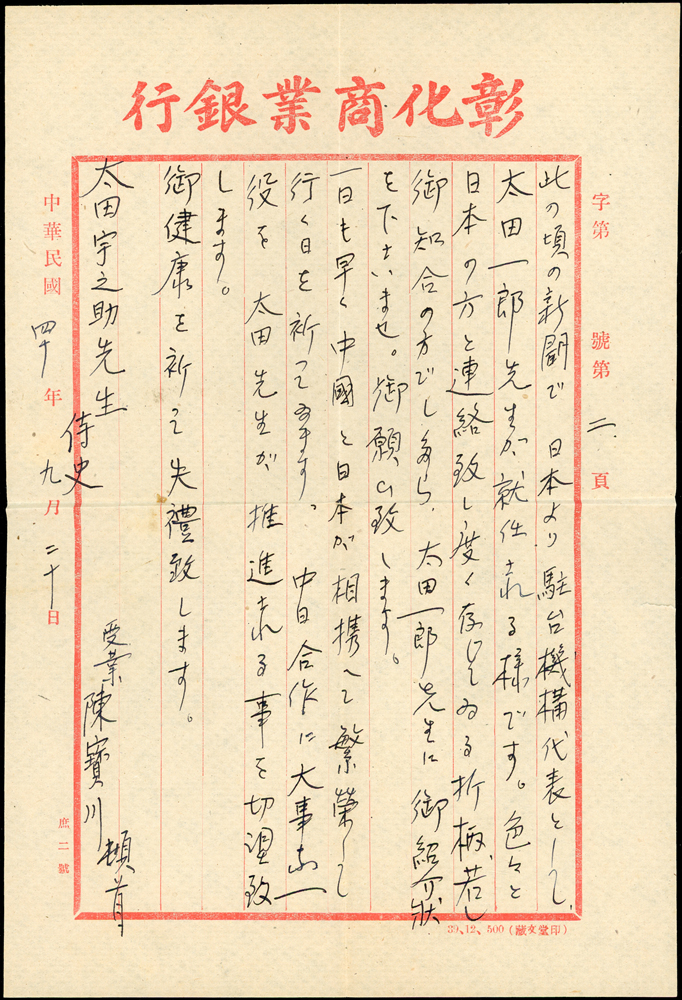 彰化商業銀行
字第 號第 二 頁
此の頃の新聞で 日本より 駐台機構代表として、
太田一郎先生が就任される様です。色々と
日本の方と連絡致し度く存じてゐる折柄、若し
御知合の方でしたら、太田一郎先生に御紹介狀
を下さいませ。御願ひ致します。
一日も早く中國と日本が相携へて繁榮して
行く日を祈つてゐます。中日合作に大事な
役を 太田先生が推進される事を切望致
します。
御健康を祈つて失禮致します。
太田宇之助先生 侍史
受業 陳寶川 頓首
中華民國 四十年 九月 二十日
庶二號
39、12、500（印堂文藏）